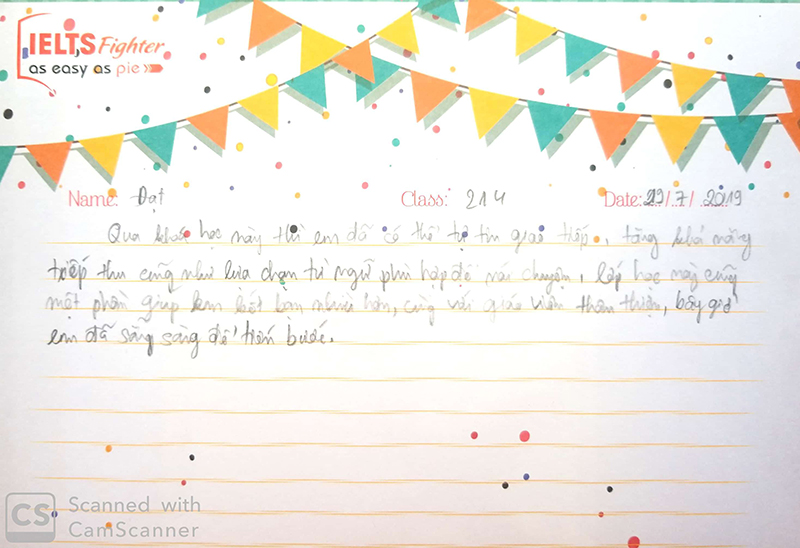 IELTS Fighter
as easy as pie
Name: Đạt Class: 214 Date: 29/7/2019
Qua khoá học này thì em đã có thể tự tin giao tiếp, tăng khả năng
tiếp thu cũng như lựa chọn từ ngữ phù hợp để nói chuyện, lớp học này cũng
một phần giúp em kết bạn nhiều hơn, cùng với giáo viên thân thiện, bây giờ
em đã sẵn sàng để tiến bước.
CS Scanned with
CamScanner